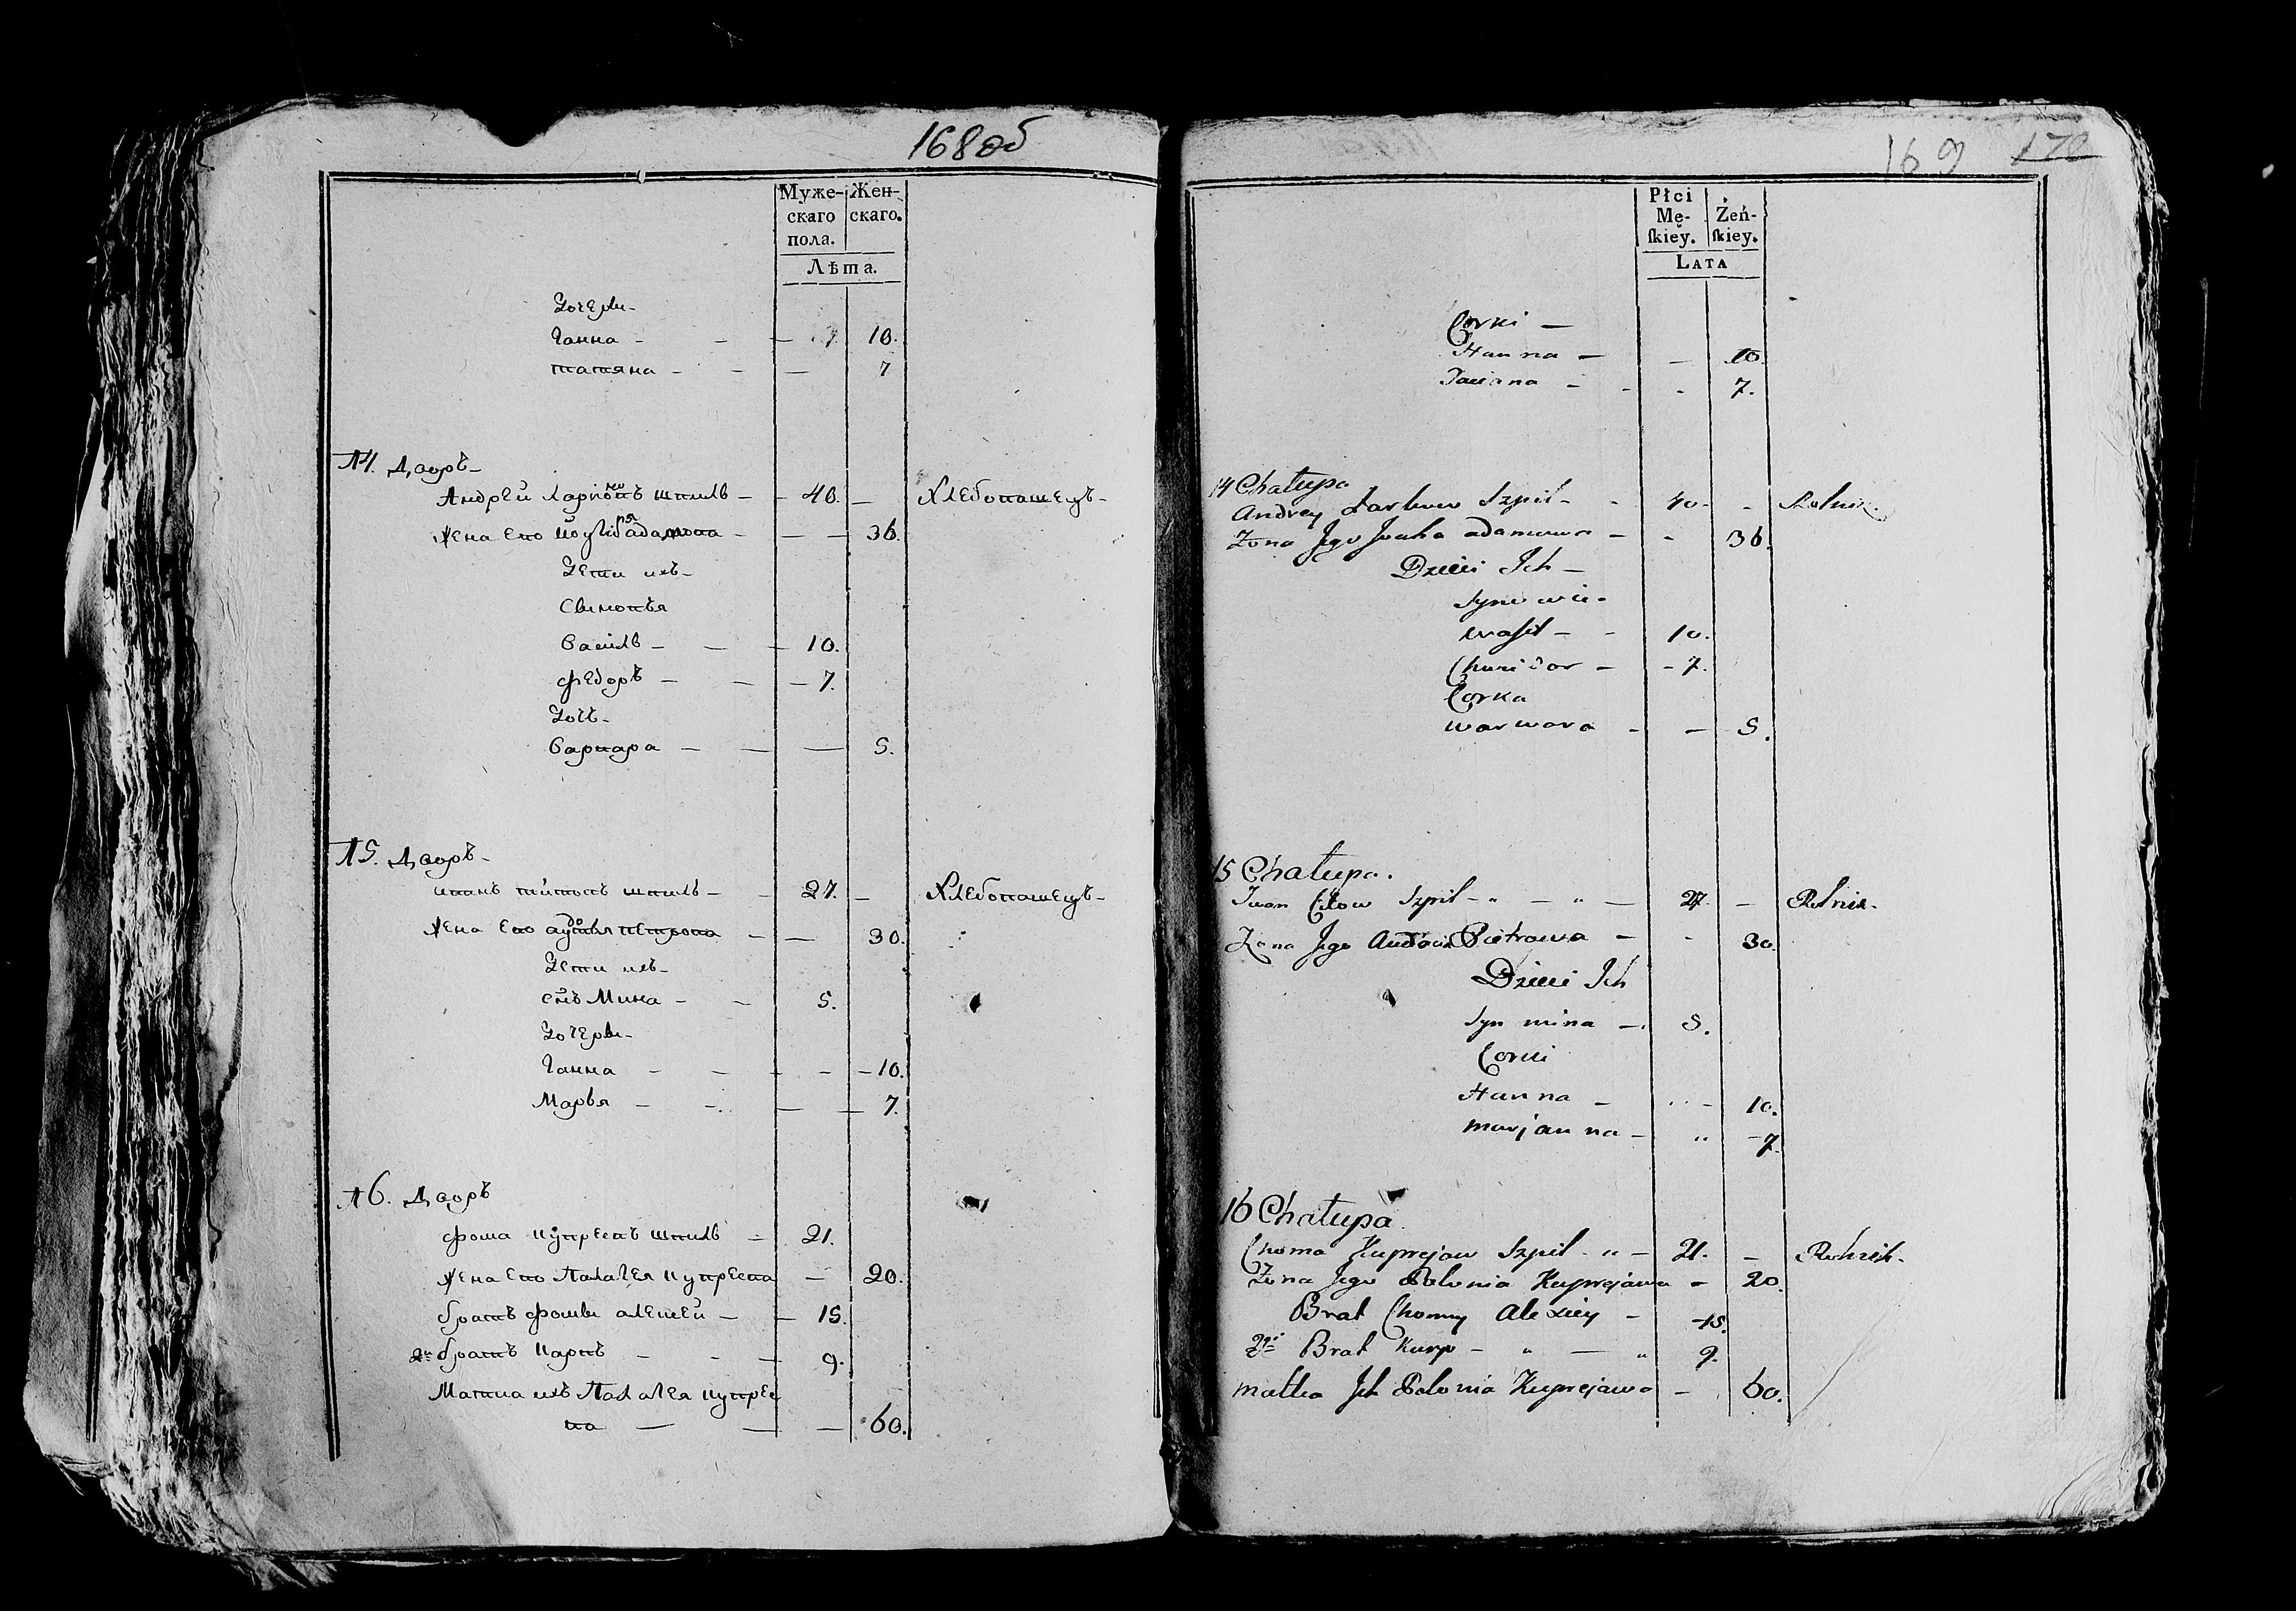 168 об
Муже-
скаго
пола.
Жен-
скаго.
Лѣта.
Дочери
Ганна - - - 10.
татяна - - - 7
14. Дворъ
Андрей Ларионовъ шпиль - - 40. - Хлебопашецъ
Жена Его адамова - - - 36.
Дети ихъ
Сыновья
Василь - - - 10.
Федоръ - - - 7.
Дочь
Варвара - - - 5.
15. Дворъ
иванъ титовъ шпиль - - 27. - Хлебопашецъ
Жена Его авдотья петрова - - 30.
Дети ихъ
снъ Мина - - 5.
Дочери
Ганна - - - - - 10.
Марья - - - - 7.
16. Дворъ
фома купреевъ шпиль - 21.
Жена Его Палагея купреева - 20.
братъ фомы алексей - - 15.
2й братъ карпъ - - - 9.
Матка ихъ Палагея купрее
ва - - - 60.
169 170
Płci
Mę-
skiey.
Żeń-
skiey.
LATA
Corki -
Hanna - - 10.
Taciana - - - 7.
14 Chałupa
Andrey Larkow Szpil - - 40 - - Rolnik.
Zona Jego adamowa - - 36.
Dzieci Ich -
Synowie -
Wasil - - 10.
Chwiedor - - 7.
Corka
warwara - - 5.
15 Chałupa.
Iwan Citow Szpil - „ - „ - 27. - Rolnik.
Zona Jego Audocia Pietrowa - - 30.
Dzieci Ich
Syn mina - 5.
Corki
Hanna - - 10.
marjanna - „ - 7.
16 Chałupa
Choma Kuprejow Szpil - „ - 21. - Rolnik.
Zona Jego Polonia Kuprejowa - 20.
Brat Chomy Alexiey - - 15.
2gi Brat Karp - „ - „ 9.
matka Ich Polonia Kuprejowa - 60.